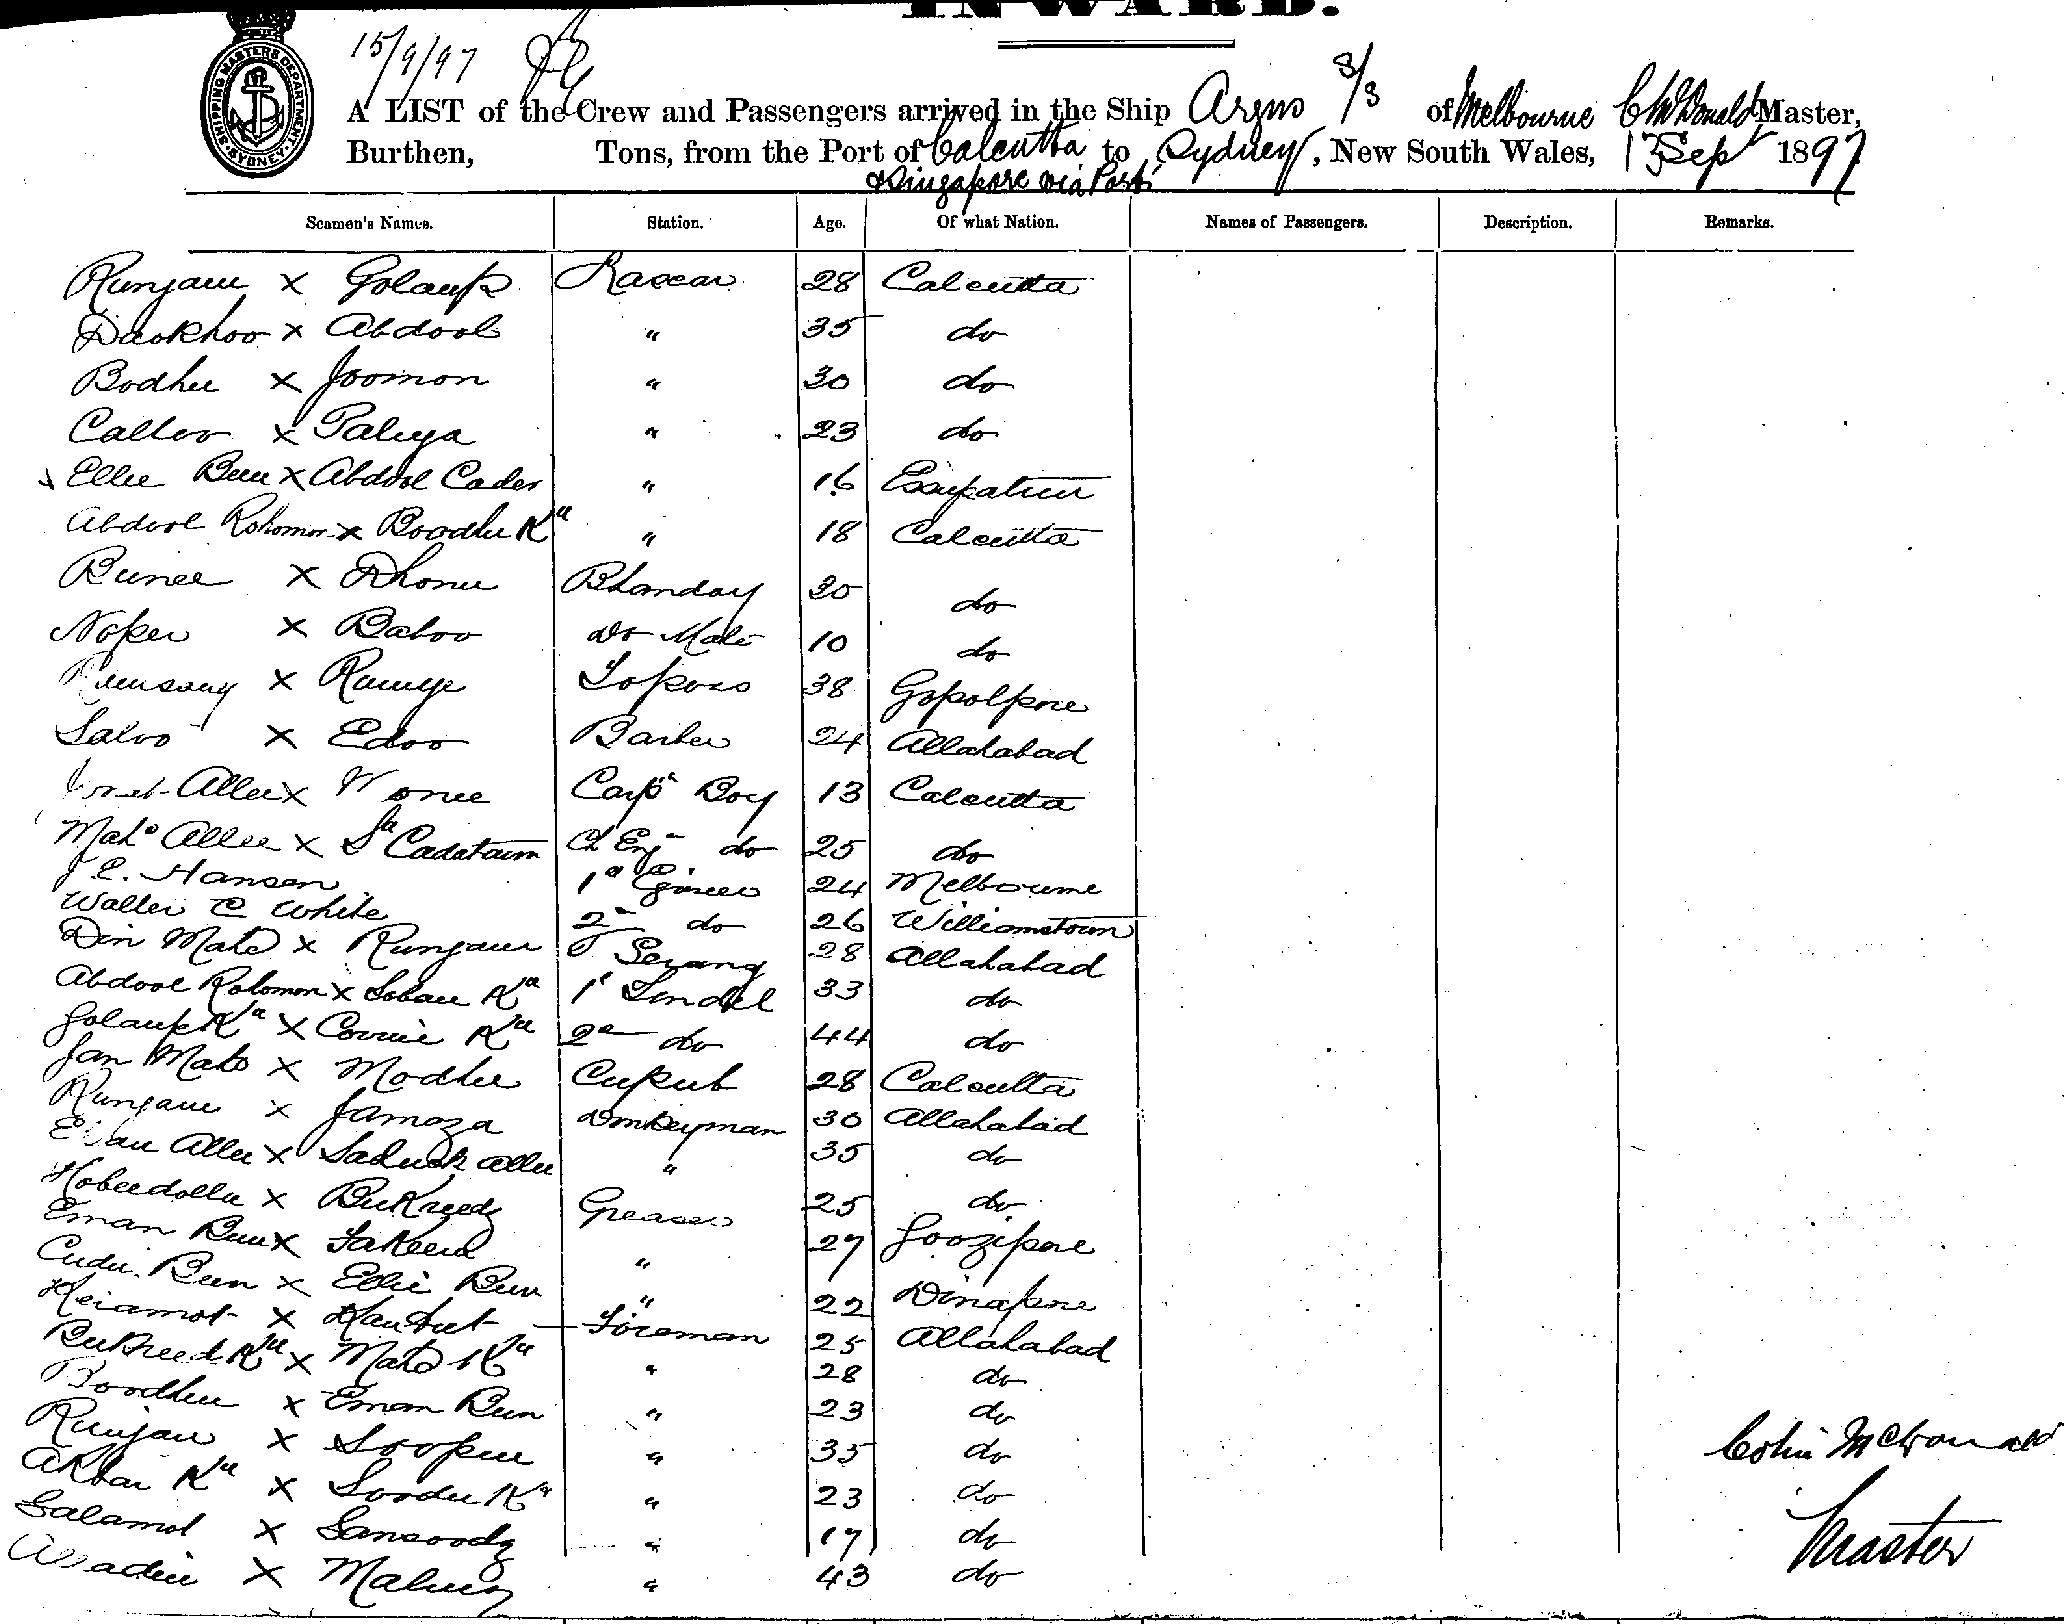 INWARD.
SHIPPING MASTERS DEPARTMENT SYDNEY
15/9/97
A LIST of the Crew and Passengers arrived in the Ship Argus S/S of Melbourne C McDonald Master,
Burthen, Tons, from the Port of Calcutta to Sydney, New South Wales, 13 Sept 1897
& Singapore via Ports
Seamen's Names. Station. Age. Of what Nation. Names of Passengers. Description. Remarks.
Runjau X Golaup Lascar 28 Calcutta
Daokhoo X Abdool " 35 do
Bodhu X Joomon " 30 do
Calloo X Paluya " 23 do
Ellie Bux X Abdool Cader " 16
Abdool Rohomon X Boodhu Kn " 18 Calcutta
X Dhonu Bhanday 30 do
X Baboo do Mate 10 do
Rumsamy X Ramye Topass 38 Gopolpore
X Edoo Barber 24 Allahabad
Allee X Capt Boy 13 Calcutta
Mahd Allee X Ch Eng do 25 do
J C. Hansen 1st Greaser 24 Melbourne
Walter C White 2nd do 26 Williamstown
Din Mahd X Runjaun Serang 28 Allahabad
Abdool Rohomon X Kn 1st Tindel 33 do
Golaup Kn X Kn 2nd do 44 do
Jan Mahd X Modhu 28 Calcutta
Runjaun X Jamoza Donkeyman 30 Allahabad
Allee X Allee " 35 do
Hobeedolla X Greaser 25 do
Eman Bux X Fakeera " 27 Goozipore
Bux X Ellie Bux " 22 Dinapore
Keiamot X Fireman 25 Allahabad
Bukreed Kn X Mahd Kn " 28 do
Boodhu X Eman Bux " 23 do
Runjau X Soopun " 35 do
Akbar Kn X Kn " 23 do
Salamot X " 17 do
X " 43 do
Colin McDonald
Master